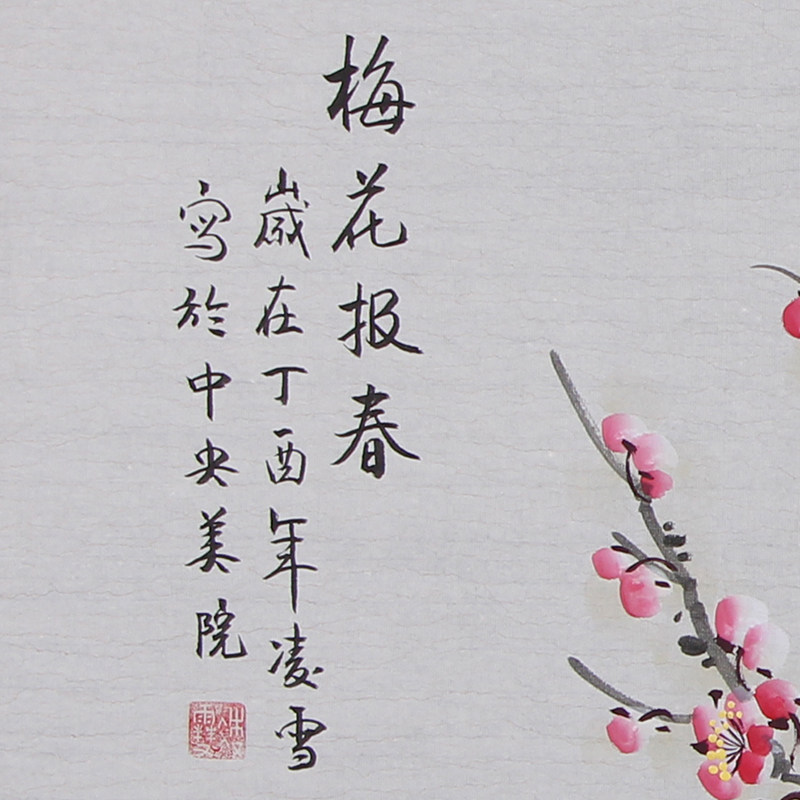 梅花报春
歲在丁酉年凌雪
寫於中央美院